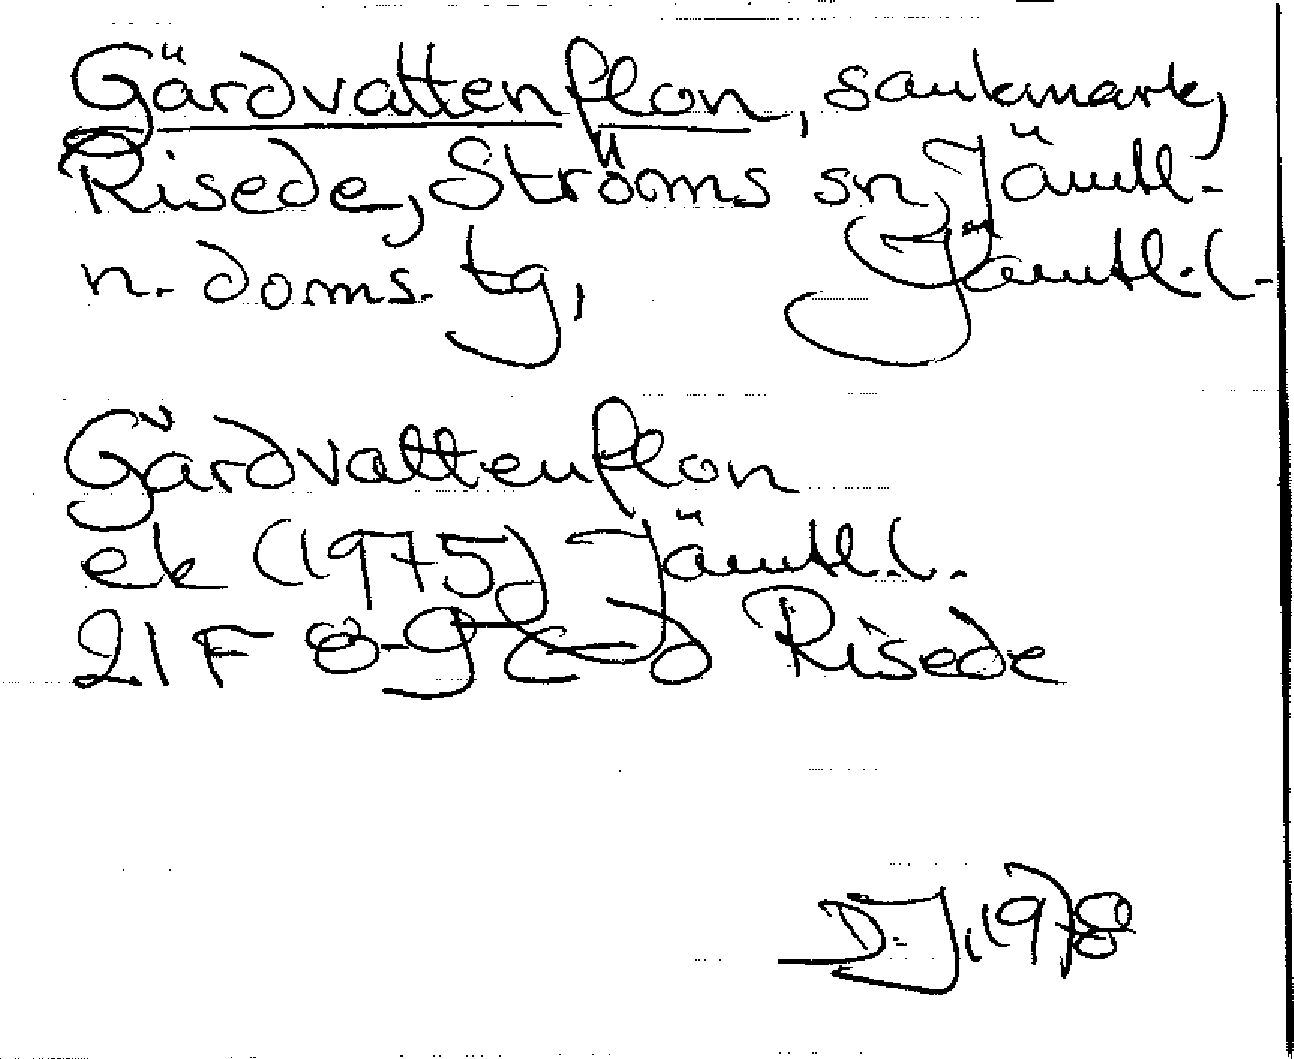 Gärdvattenflon, sankmark,
Risede, Ströms sn, Jämtl-
n. doms. tg, Jämtl. l.
Gärdvattenflon
ek (1975) Jämtl. l.
21 F 8-9 c-d Risede
D.J, 1978